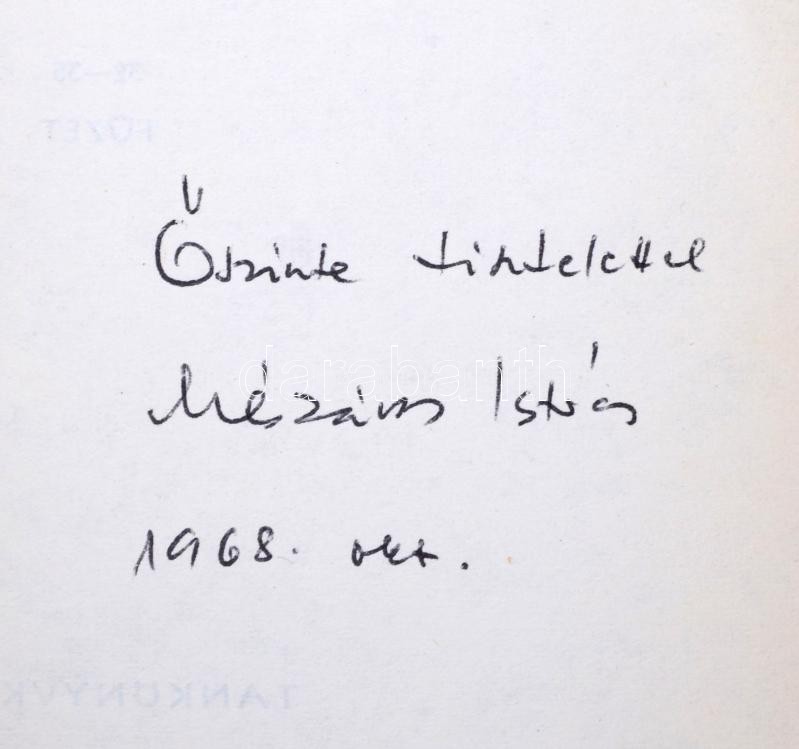 32—35
FÜZET
Őszinte tisztelettel
darabanth
Mészáros István
1968. okt.
TANKÖNYVK